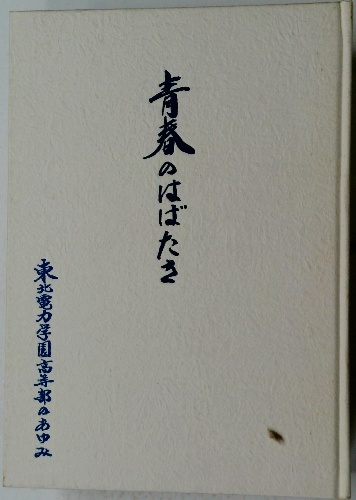 青春のはばたき
東北電力学園高等部のあゆみ